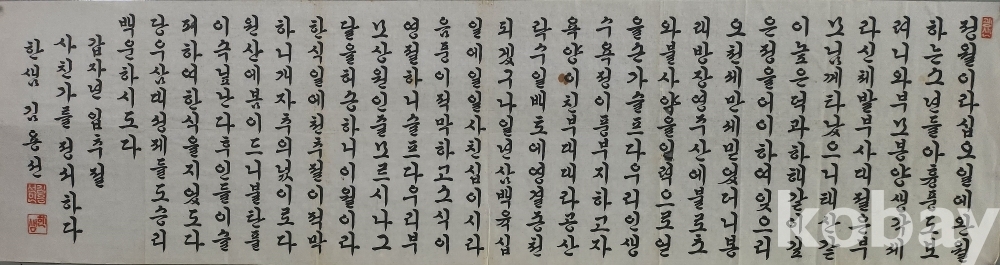 정월이라십오일에완월
하는소년들아흉풍도보
려니와부모봉양생각세
라신체발부사대절을부
모님께타낫으니태산갈
이높은덕과하해갈이깊
은정을어이하여잊으리
오천세만세믿었더니봉
래방장영주산에불로초
와불사약을일력으로얻
을손가슬프다우리인생
수욕정이풍부지하고자
욕양이친부대대라공산
락수일배토에영결종천
되겠구나일년삼백육십
일에일일사친십이시라
음풍이적막하고소식이
영절하니슬프다우리부
모상원인줄모르시나그
달을허송하니이월이라
한식일에천추절이적막
하니개자추의넋이로다
원산에봄이드니불탄풀
이속닢난다후인들이슬
퍼하여한식을지었도다
당우삼대성제들도승리
백운하시도다
갑자년입추절
사친가를 하다
한샘 김용선
kobay